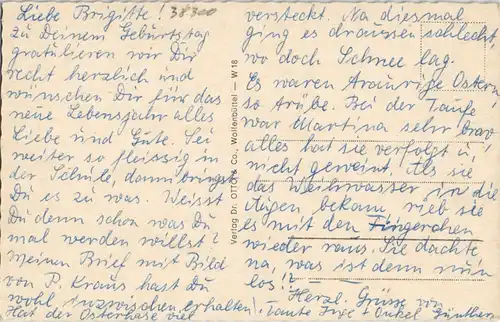 Liebe Brigitte! 38300
zu Deinem Geburtstag
gratulieren wir Dir
recht herzlich und
wünschen Dir für das
neue Lebensjahr alles
Liebe und Gute. Sei
weiter so fleissig in
der Schule, dann bringst
Du es zu was. Weisst
Du denn schon was Du
mal werden willst?
Meinen Brief mit Bild
von P. Kraus hast Du
wohl inzwischen erhalten.
Hat der Osterhase viel
Verlag Dr. OTTO & Co., Wolfenbüttel — W 18
versteckt. Na diesmal
ging es draussen schlecht
wo doch Schnee lag.
Es waren traurige Ostern
so trübe. Bei der Taufe
war Martina sehr brav
alles hat sie verfolgt u.
nicht geweint. Als sie
das Weihwasser in die
Augen bekam, rieb sie
es mit den Fingerchen
wieder raus. Sie dachte
na, was ist denn nun
los!?
Herzl. Grüsse von
Tante + Onkel Günther